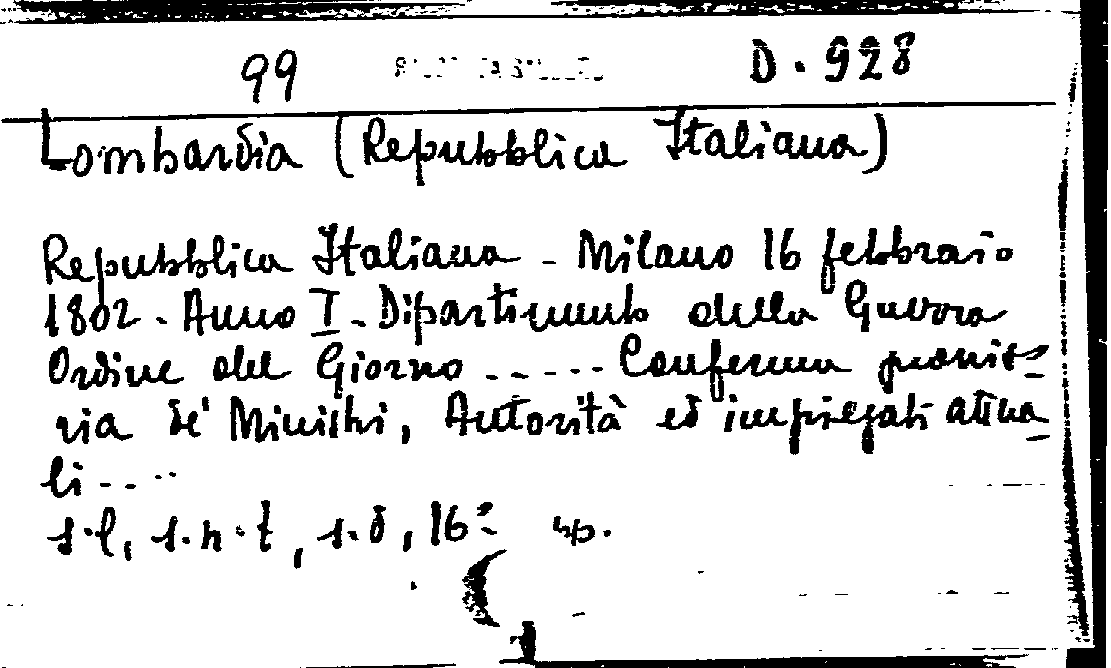 99 D. 928
Lombardia (Repubblica Italiana)
Repubblica Italiana - Milano 16 febbraio
1802 - Anno I - Dipartimento della Guerra
Ordine del Giorno ..... Conferma provviso-
ria de' Ministri, Autorità ed impiegati attua-
li ....
s.l, s.n.t, s.d, 16°